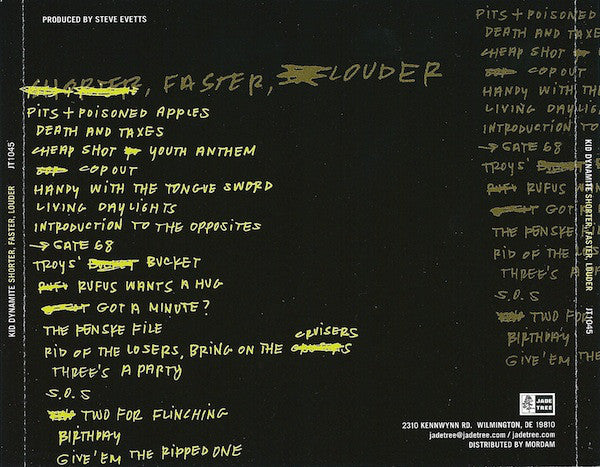 PRODUCED BY STEVE EVETTS
SHORTER, FASTER, LOUDER
PITS + POISONED APPLES
DEATH AND TAXES
CHEAP SHOT YOUTH ANTHEM
COP OUT
HANDY WITH THE TONGUE SWORD
LIVING DAYLIGHTS
INTRODUCTION TO THE OPPOSITES
→ GATE 68
TROYS' BUCKET
RUFUS WANTS A HUG
GOT A MINUTE?
THE PENSKE FILE
CRUISERS
RID OF THE LOSERS, BRING ON THE
THREE'S A PARTY
S.O.S
TWO FOR FLINCHING
BIRTHDAY
GIVE 'EM THE RIPPED ONE
KID DYNAMITE SHORTER, FASTER, LOUDER JT1045
PITS + POISONED
DEATH AND TAXE
CHEAP SHOT
COP OUT
HANDY WITH TH
LIVING DAYLIG
INTRODUCTION TO
→ GATE 68
TROYS'
RUFUS WAN
GOT A
THE PENSKE
RID OF THE LOSE
THREE'S A PAR
S.O.S
TWO FOR
BIRTHDAY
GIVE 'EM THE
KID DYNAMITE SHORTER, FASTER, LOUDER JT1045
JADE
TREE
2310 KENNWYNN RD. WILMINGTON, DE 19810
jadetree@jadetree.com / jadetree.com
DISTRIBUTED BY MORDAM